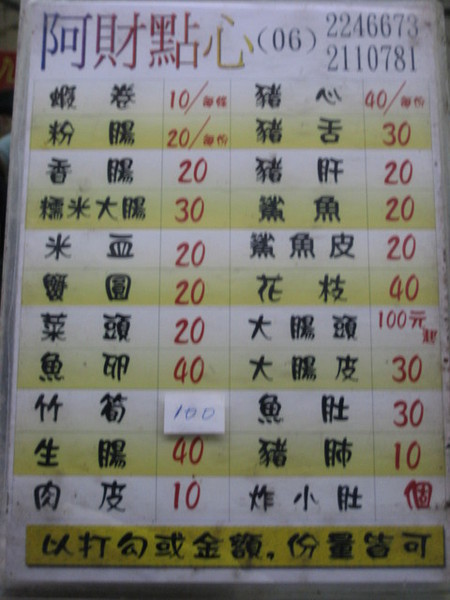 阿財點心(06) 2246673
2110781
蝦卷 10/每條 豬心 40/每份
粉腸 20/每份 豬舌 30
香腸 20 豬肝 20
糯米大腸 30 鯊魚 20
米血 20 鯊魚皮 20
蟹圓 20 花枝 40
菜頭 20 大腸頭 100元
魚卵 40 大腸皮 30
竹筍 100 魚肚 30
生腸 40 豬肺 10
肉皮 10 炸小肚 個
以打勾或金額,份量皆可